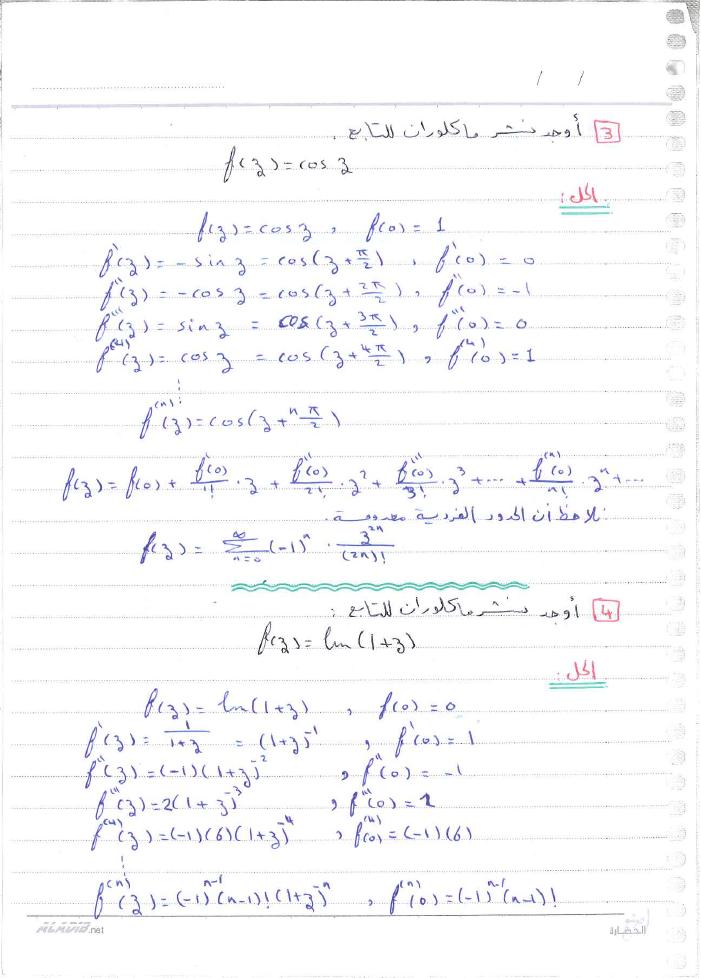 / /
3 أوجد نشر ماكلوران للتابع .
f(z) = cos z
الحل :
f(z) = cos z , f(0) = 1
f'(z) = - sin z = cos(z + π/2) , f'(0) = 0
f''(z) = - cos z = cos(z + 2π/2) , f''(0) = -1
f'''(z) = sin z = cos(z + 3π/2) , f'''(0) = 0
f^(4)(z) = cos z = cos(z + 4π/2) , f^(4)(0) = 1
⋮
f^(n)(z) = cos(z + n π/2)
f(z) = f(0) + f'(0)/1! · z + f''(0)/2! · z² + f'''(0)/3! · z³ + ··· + f^(n)(0)/n! · z^n + ···
نلاحظ أن الحدود الفردية معدومة .
f(z) = ∑_{n=0}^{∞} (-1)^n · z^{2n}/(2n)!
4 أوجد نشر ماكلوران للتابع :
f(z) = ln(1+z)
الحل :
f(z) = ln(1+z) , f(0) = 0
f'(z) = 1/(1+z) = (1+z)^{-1} , f'(0) = 1
f''(z) = (-1)(1+z)^{-2} , f''(0) = -1
f'''(z) = 2(1+z)^{-3} , f'''(0) = 2
f^(4)(z) = (-1)(6)(1+z)^{-4} , f^(4)(0) = (-1)(6)
⋮
f^(n)(z) = (-1)^{n-1}(n-1)!(1+z)^{-n} , f^(n)(0) = (-1)^{n-1}(n-1)!
.net
الحضارة